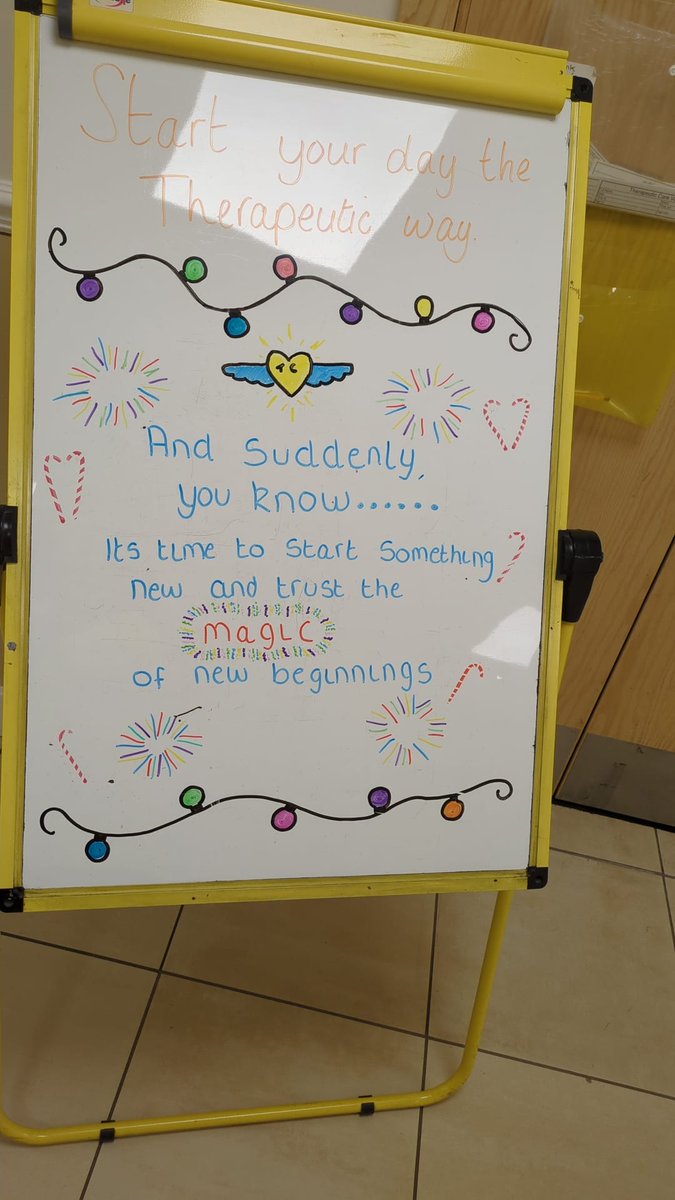 Start your day the
Therapeutic way.
And Suddenly,
you know......
Its time to Start Something
new and trust the
magic
of new beginnings